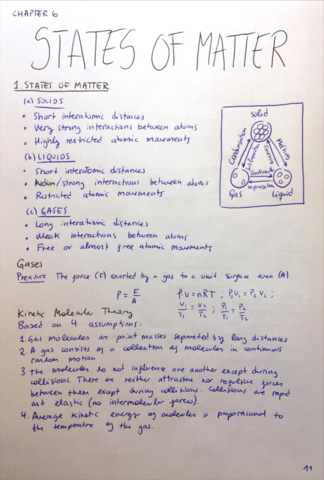 CHAPTER 6
STATES OF MATTER
1. STATES OF MATTER
(a) SOLIDS
• Short interatomic distances
• Very strong interactions between atoms
• Highly restricted atomic movements
(b) LIQUIDS
• Short interatomic distances
• Medium/strong interactions between atoms
• Restricted atomic movements
(c) GASES
• Long interatomic distances
• Weak interactions between atoms
• Free or almost free atomic movements
Solid
Melting
Gas
Liquid
Gases
Pressure The force (F) exerted by a gas to a unit surface area (A)
P = F/A PV = nRT ; P₁V₁ = P₂V₂ ;
V₁/T₁ = V₂/T₂ ; P₁/T₁ = P₂/T₂
Kinetic Molecule Theory
Based on 4 assumptions:
1. Gas molecules are point masses separated by long distances
2. A gas consists of a collection of molecules in continuous
random motion
3. The molecules do not influence one another except during
collisions. There are neither attractive nor repulsive forces
between them except during collisions. Collisions are rapid
and elastic (no intermolecular forces).
4. Average kinetic energy of molecules is proporcional to
the temperature of the gas.